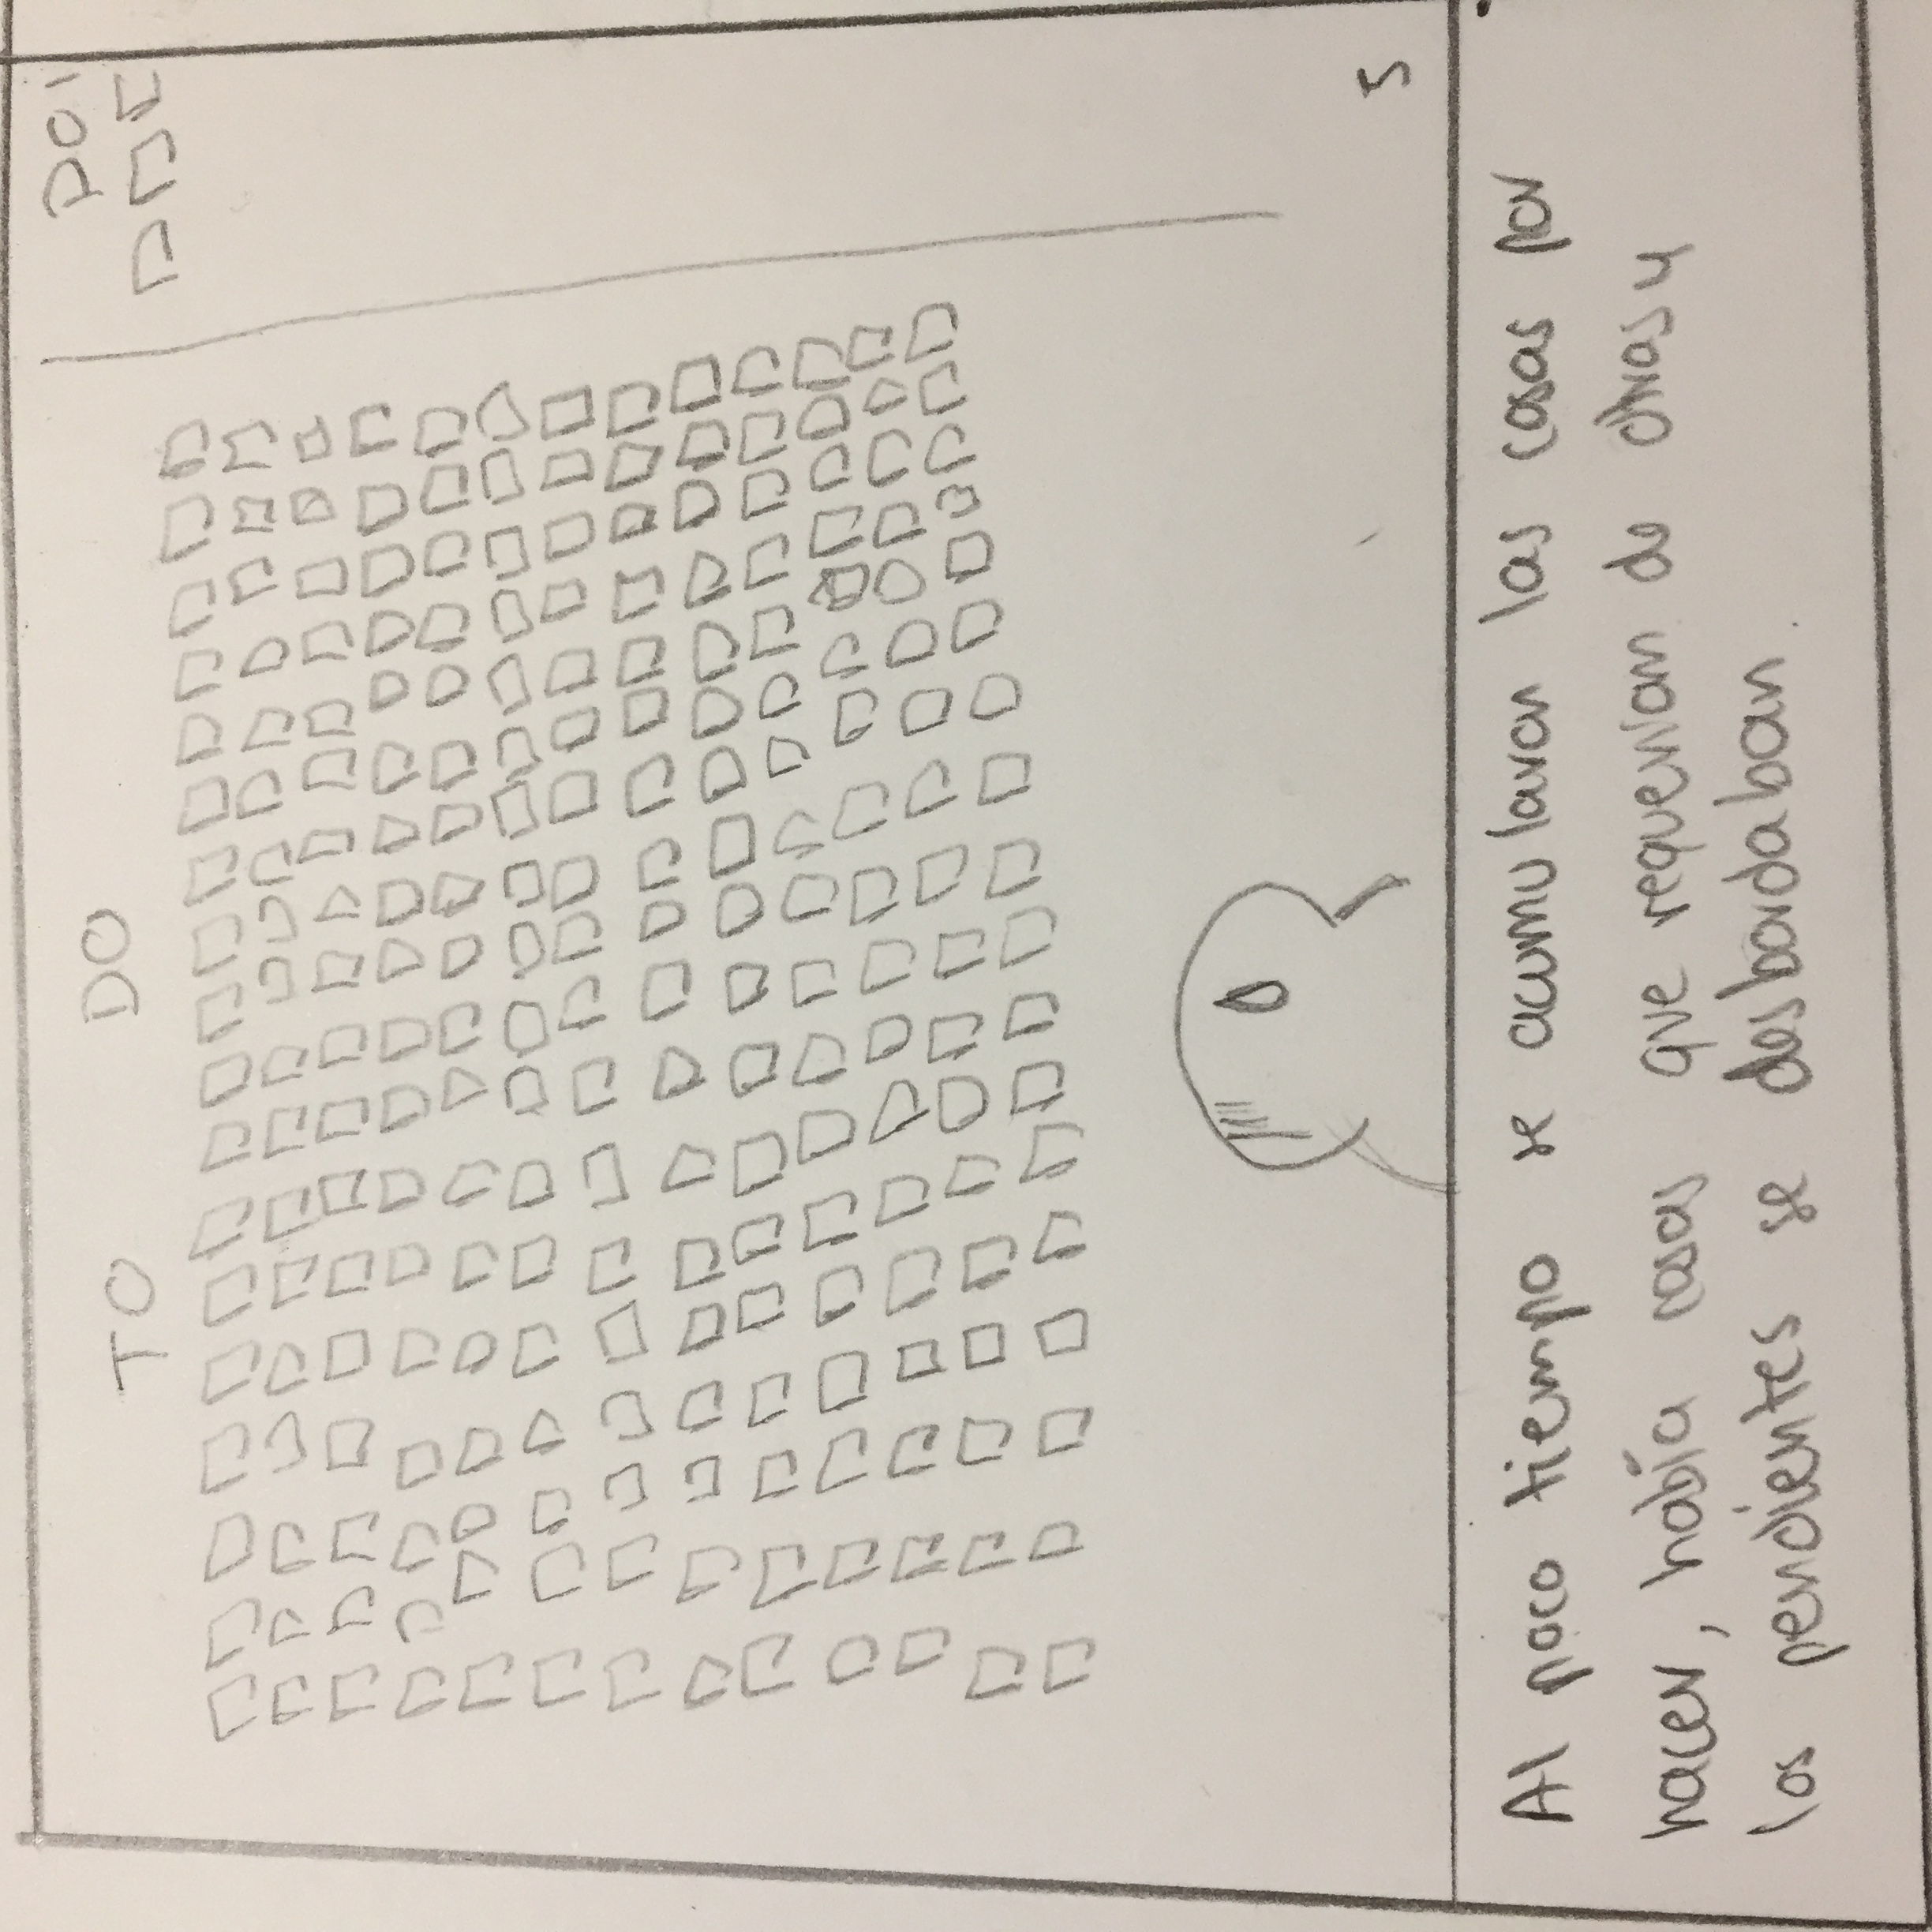 TO DO
DOI
5
Al poco tiempo se acumularon las cosas por
hacer, había cosas que requerían de otras y
los pendientes se desbordaban.